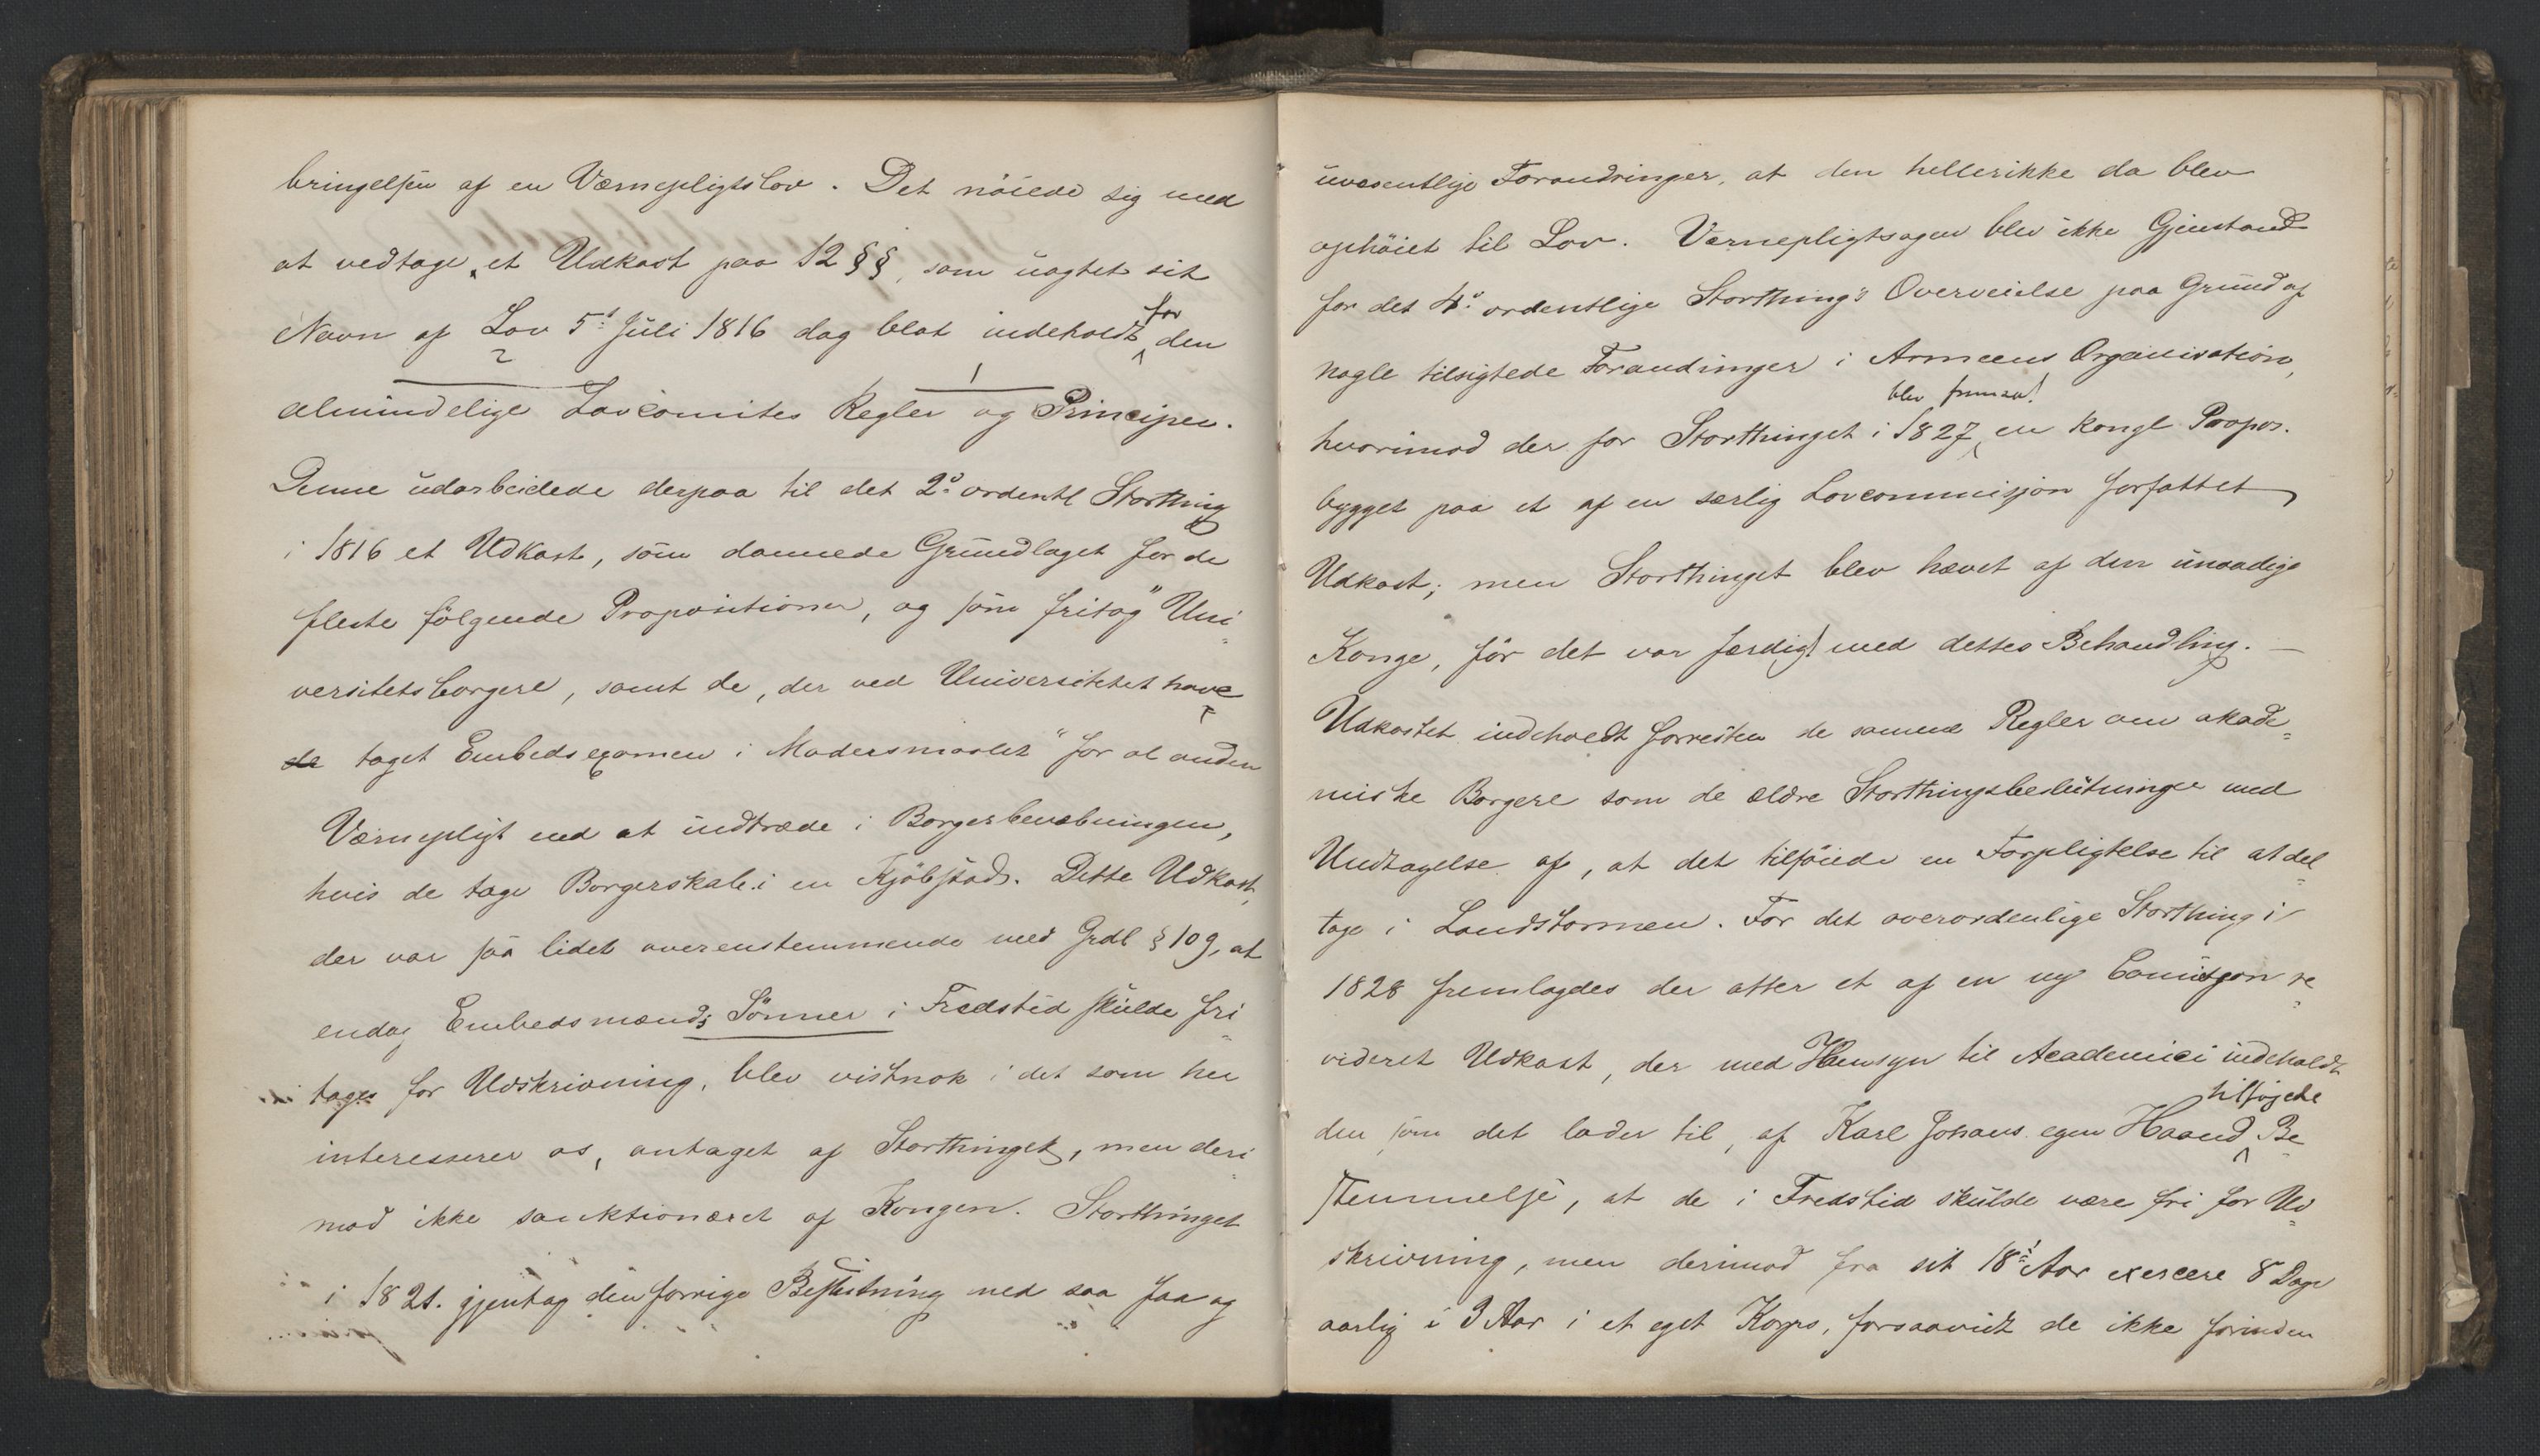 bringelsen af en Værnepligtslov. Det nöiede sig med
at vedtage et Udkast paa 12 §§, som uagtet sit
Navn af Lov 5t Juli 1816 dog blot indeholdt for den
2 1
almindelige Lovcomites Regler og Principer.
Denne udarbeidede derpaa til det 2° ordentl Storthing
i 1816 et Udkast, som dannede Grundlaget for de
fleste fölgende Propositioner, og som fritog "Uni
versitetsborgere, samt de, der ved Universitetet have
de taget Embedsexamen i Modersmaalet" for al anden
Værnepligt end at indtræde i Borgerbevæbningen,
hvis de tage Borgerskab i en Kjöbstad. Dette Udkast,
der var saa lidet overenstemmende med Grdl § 109, at
endog Embedsmænds Sönner i Fredstid skulde fri
tages for Udskrivning, blev vistnok i det som her
interesserer os, antaget af Storthinget, men deri
mod ikke sanktioneret af Kongen. Storthinget
i 1821. gjentog den forrige Beslutning med saa faa og
uvæsentlige Forandringer, at den hellerikke da blev
ophöiet til Lov. Værnepligtsagen blev ikke Gjenstand
for det 4° ordentlige Storthing's Overveielse paa Grund af
nogle tilsigtede Forandringer i Armeens Organisation,
blev fremsat
hvorimod der for Storthinget i 1827 en kongl Propos.
bygget paa et af en særlig Lovcommisjon forfattet
Udkast; men Storthinget blev hævet af den unaadige
Konge, för det var færdigt med dettes Behandling. —
Udkastet indeholdt forresten de samme Regler om akade
miske Borgere som de ældre Storthingsbeslutninger med
Undtagelse af, at det tilföiede en Forpligtelse til at del
tage i Landstormen. For det overordenlige Storthing i
1828 fremlagdes der atter et af en ny Comisjon re
videret Udkast, der med Hensyn til Academici indeholdt
tilföjede
den som det lader til, af Karl Johans egen Haand Be
stemmelse, at de i Fredstid skulde være fri for Ud
skrivning, men derimod fra sit 18t Aar exercere 8 Dage
aarlig i 3 Aar i et eget Korps, forsaavidt de ikke forinden